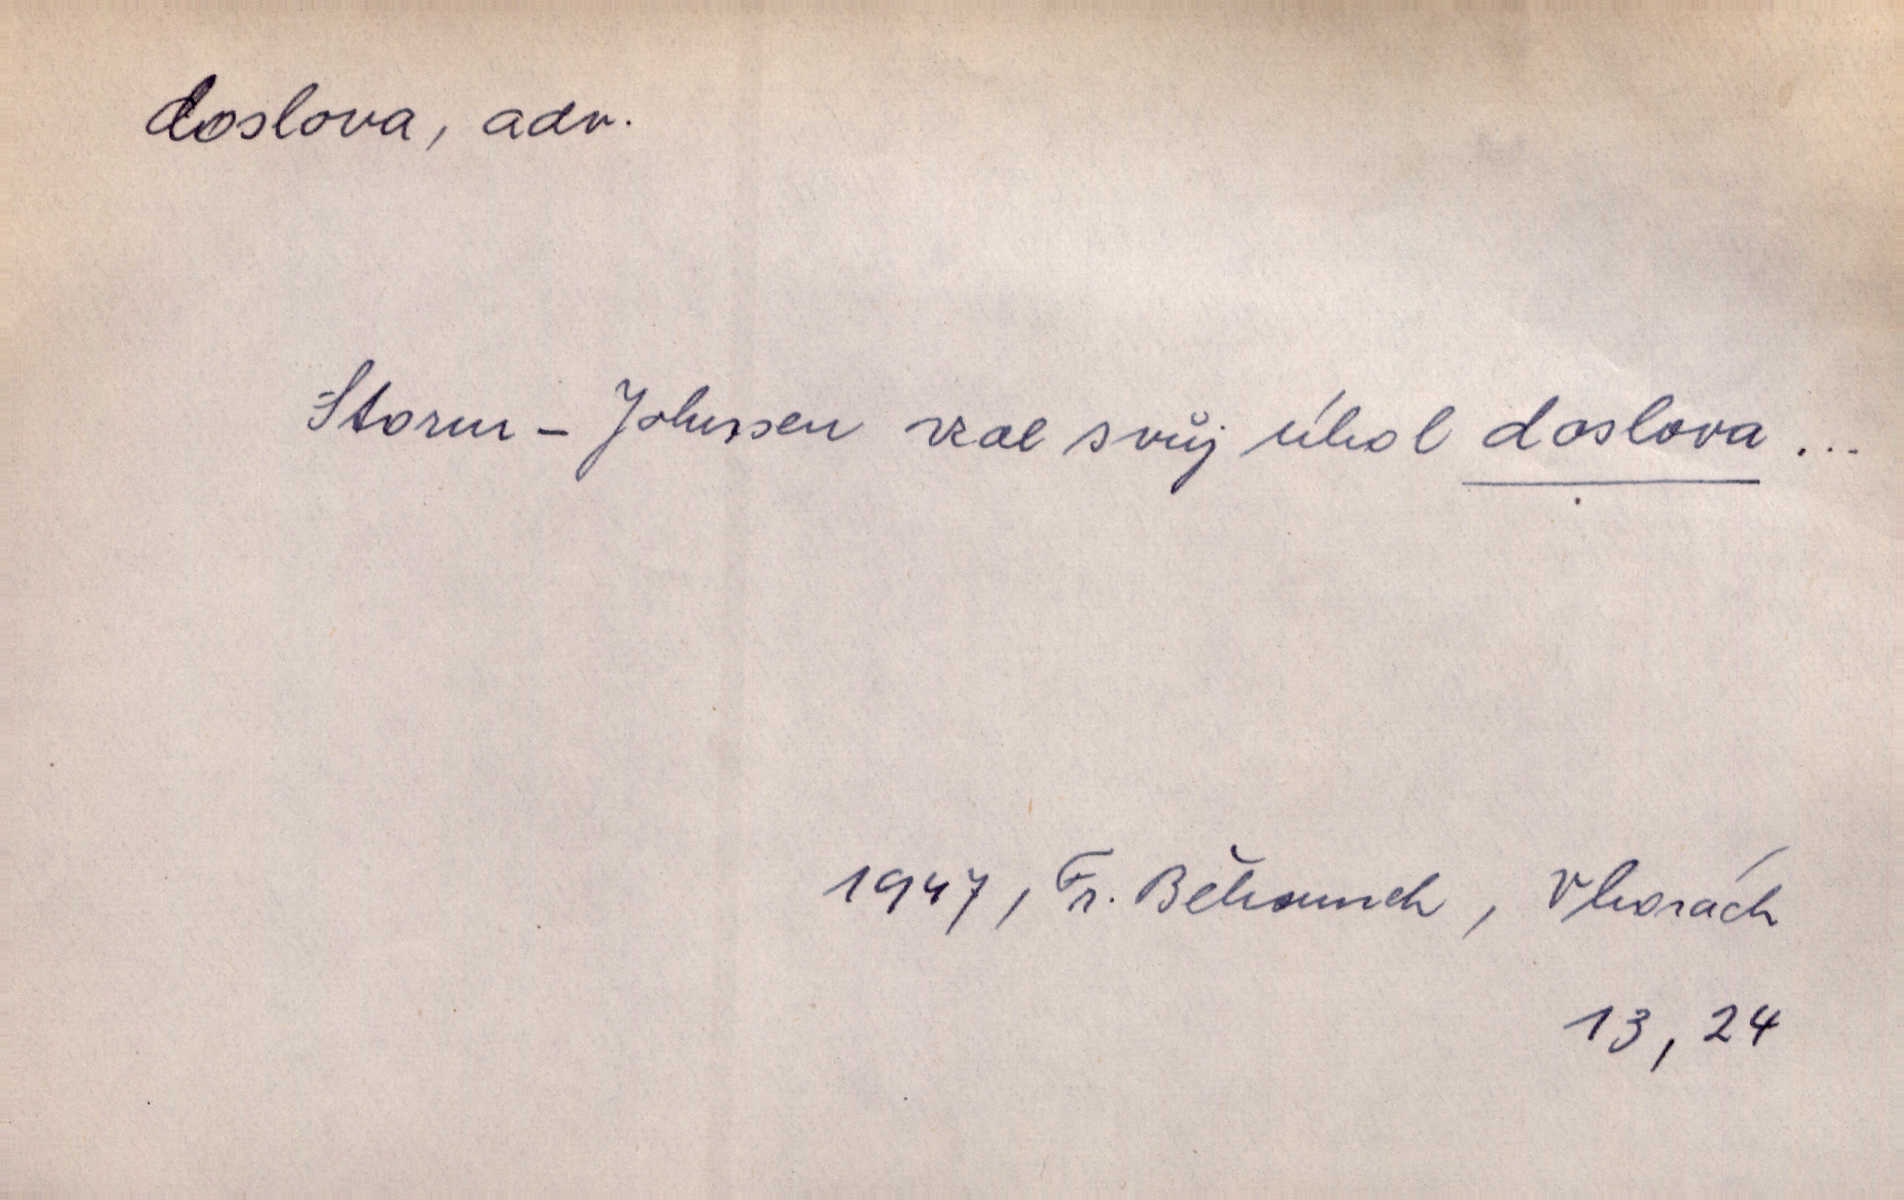 doslova, adv.
Storm - Johnsen vzal svůj úkol doslova ...
1947, Fr. Běhounek, V horách
13, 24